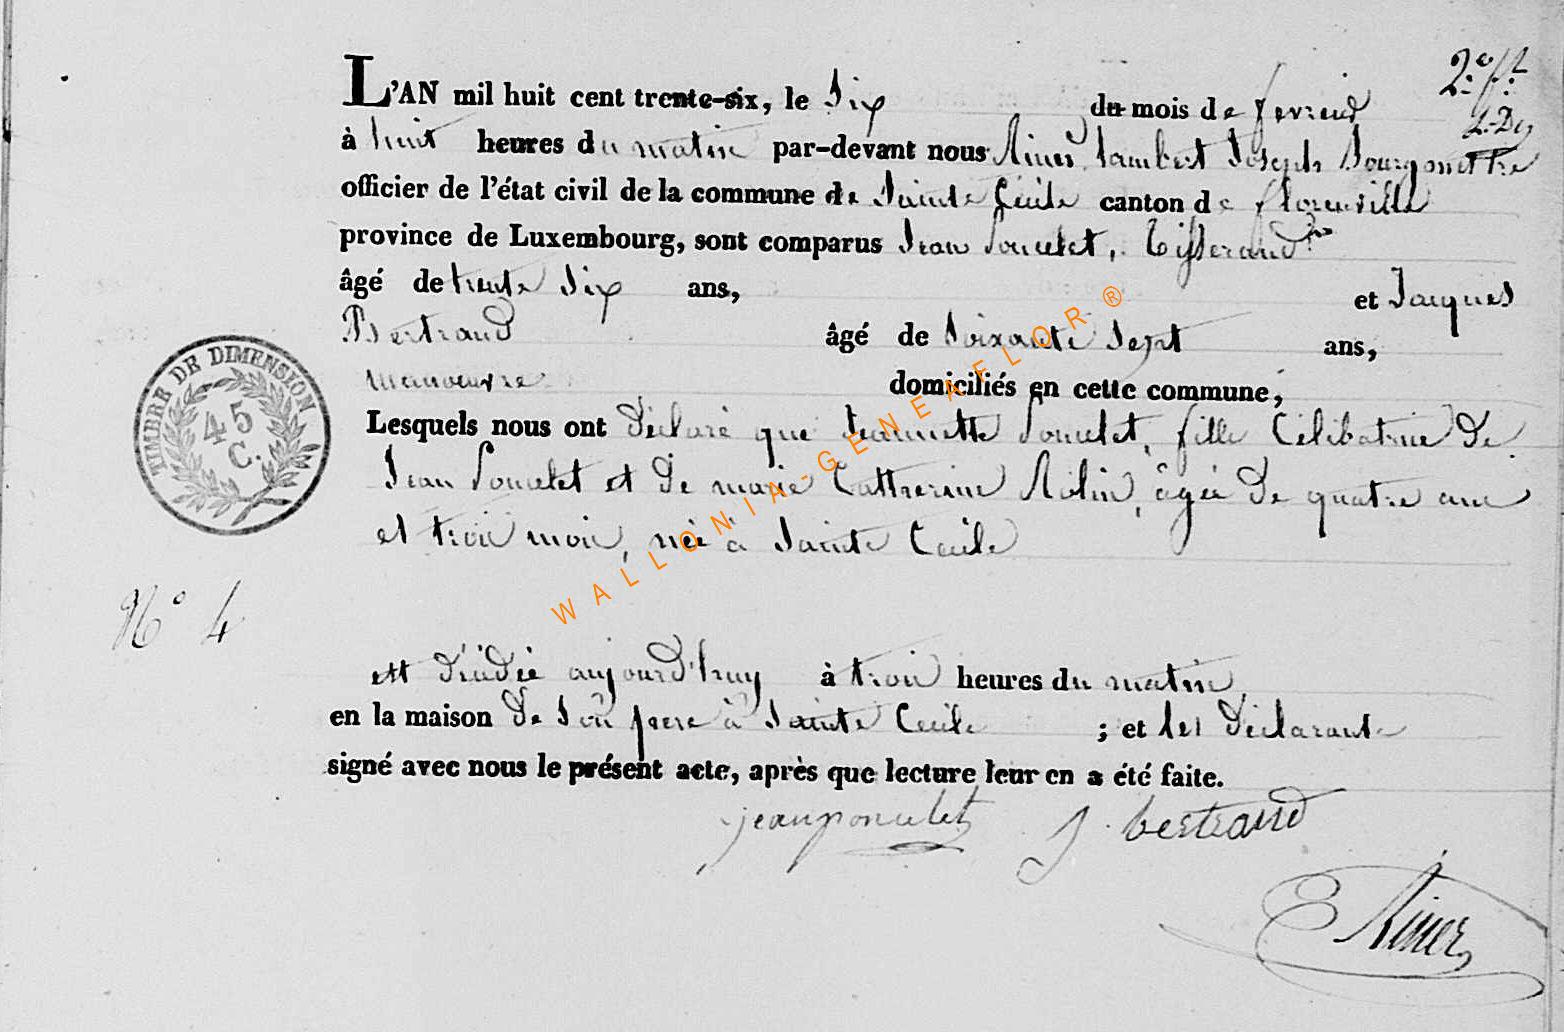 2.e f.t
2.-Dy
L'AN mil huit cent trente-six, le Six du mois de fevrier
à huit heures du matin par-devant nous Riner Lambert Joseph Bourgmettre
officier de l'état civil de la commune de Sainte Cecile canton de florenville
province de Luxembourg, sont comparus Jean Poncelet, Tisserand
âgé de trente Six ans, et Jacques
Bertrand âgé de Soixante Sept ans,
manoeuvre domiciliés en cette commune,
Lesquels nous ont déclaré que Jeannette Poncelet, fille Célibataire de
Jean Poncelet et de marie Catherine Rolin, âgée de quatre ans
et trois mois, née à Sainte Cecile
TIMBRE DE DIMENSION
45
C.
N° 4
est décédée aujourd'huy à trois heures du matin,
en la maison de Son pere à Sainte Cecile ; et les déclarants
signé avec nous le présent acte, après que lecture leur en a été faite.
jean poncelet J. bertrand
Riner
WALLONIA-GENEAFLOR®